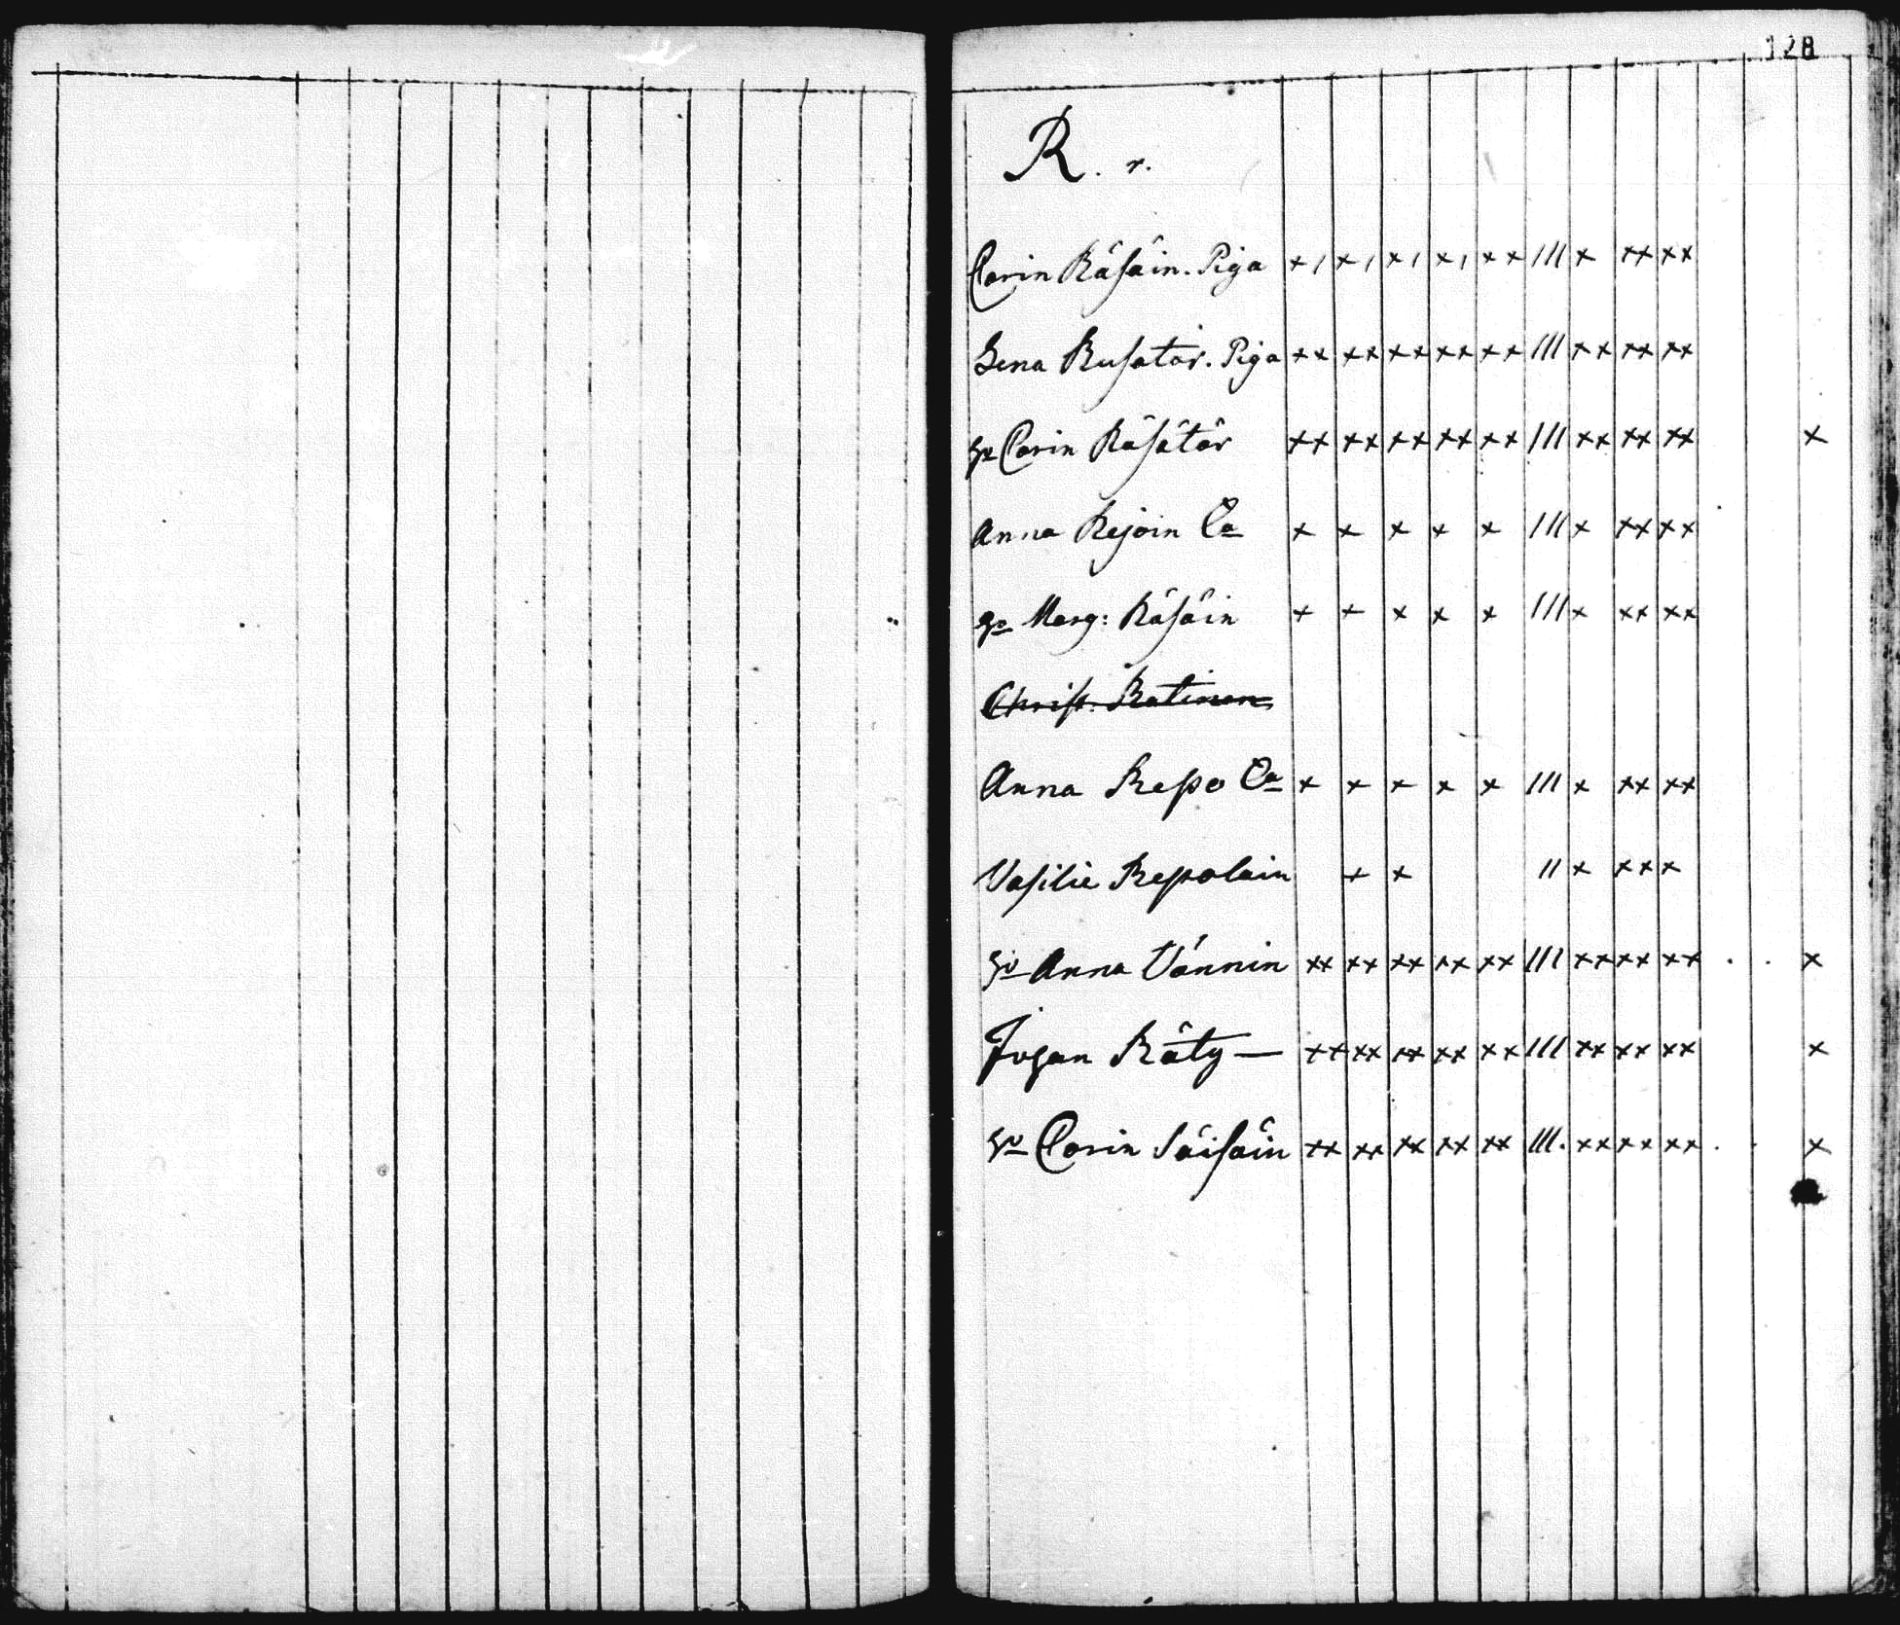 128
R. r.
Carin Räsäin. Piga x, x, x, x, xx /// x xx xx
Lena Rusatar. Piga xx xx xx xx xx /// xx xx xx
hu Carin Räsätär xx xx xx xx xx /// xx xx xx x
Anna Rejoin Ea x x x x x /// x xx xx
hu Marg: Räsäin x x x x x /// x xx xx
Christ: Ratinen
Anna Repo Ea x x x x x /// x xx xx
Vasilie Repolain x x // x xx x
hu Anna Vännin xx xx xx xx xx /// xx xx xx . . x
Johan Räty — xx xx xx xx xx /// xx xx xx x
hu Carin Säisäin xx xx xx xx xx ///. xx xx xx . . x